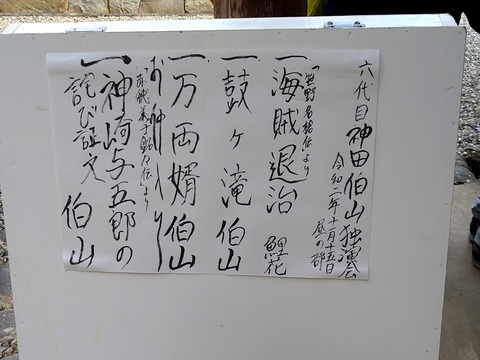 六代目神田伯山独演会
令和二年十一月十五日
昼の部
「笹野名槍伝」より
一海賊退治 鯉花
一鼓ヶ滝 伯山
一万両婿 伯山
お仲入り
「赤穂義士銘々伝」より
一神崎与五郎の
詫び証文 伯山